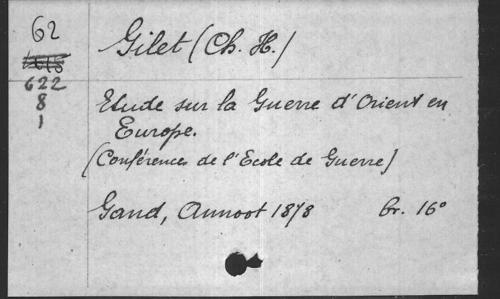 62
Gilet (Ch. H.)
622
8
1
Etude sur la Guerre d'Orient en
Europe.
(Conférences de l'Ecole de Guerre)
Gand, Annoot 1878 br. 16°